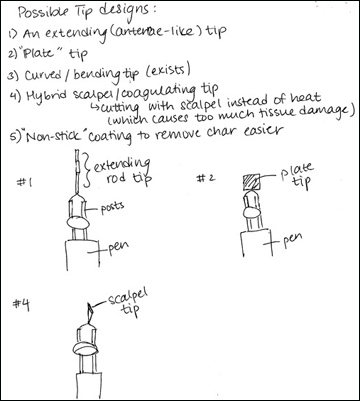 Possible Tip designs:
1) An extending (antenae-like) tip
2) "Plate" tip
3) Curved/bending tip (exists)
4) Hybrid scalpel/coagulating tip
↳ cutting with scalpel instead of heat
(which causes too much tissue damage)
5) "Non-stick" coating to remove char easier
#1
extending
rod tip
posts
pen
#2
plate
tip
pen
#4
scalpel
tip